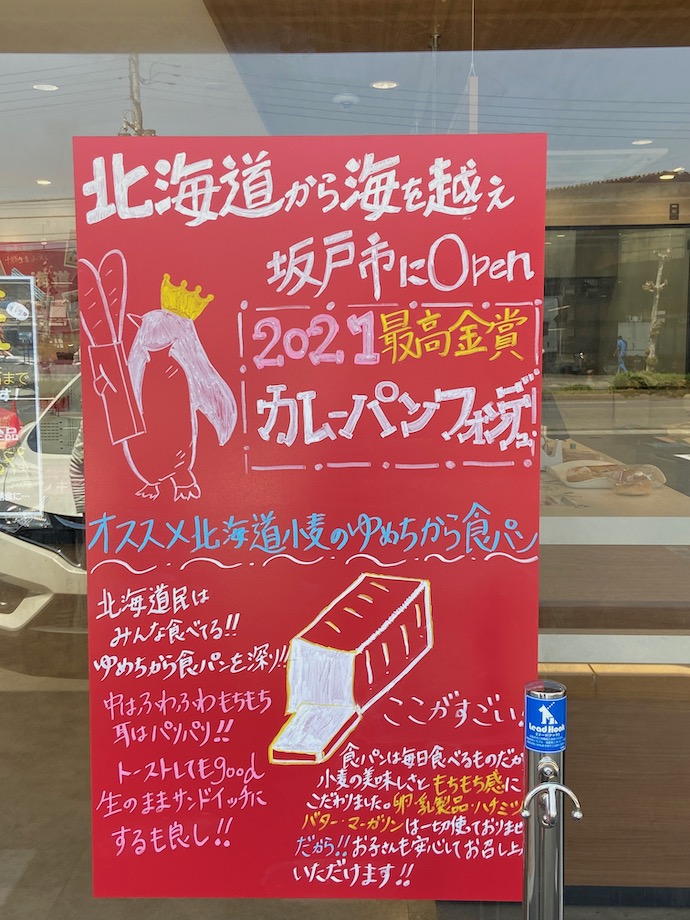 北海道から海を越え
坂戸市にOpen
2021最高金賞
カレーパンフォンデュ
オススメ北海道小麦のゆめちから食パン
北海道民は
みんな食べてる!!
ゆめちから食パンを深り!!
中はふわふわもちもち
耳はパリパリ!!
トーストしてもgood
生のままサンドイッチに
するも良し!!
ここがすごい。
食パンは毎日食べるものだか
小麦の美味しさともちもち感に
こだわりました。卵・乳製品・ハチミツ
バター・マーガリンは一切使っておりませ
だから!!お子さんも安心してお召し上
いただけます!!
Lead Hook